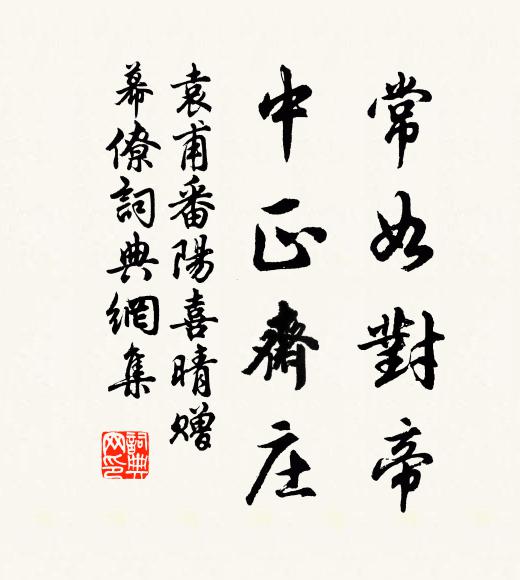 常如對帝
中正齊庄
袁甫番陽喜晴赠
幕僚詞典網集
詞典网印